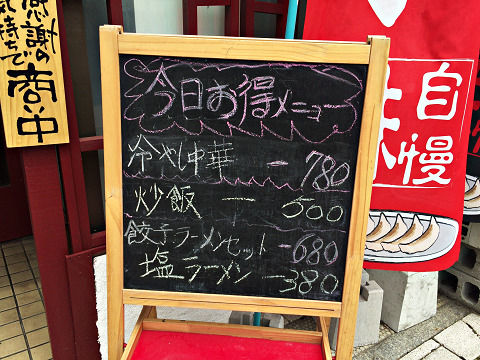 感謝の
気持ちで
商い中
今日お得メニュー
冷やし中華 - 780
炒飯 - 500
餃子ラーメンセット - 680
塩ラーメン - 380
自慢
味